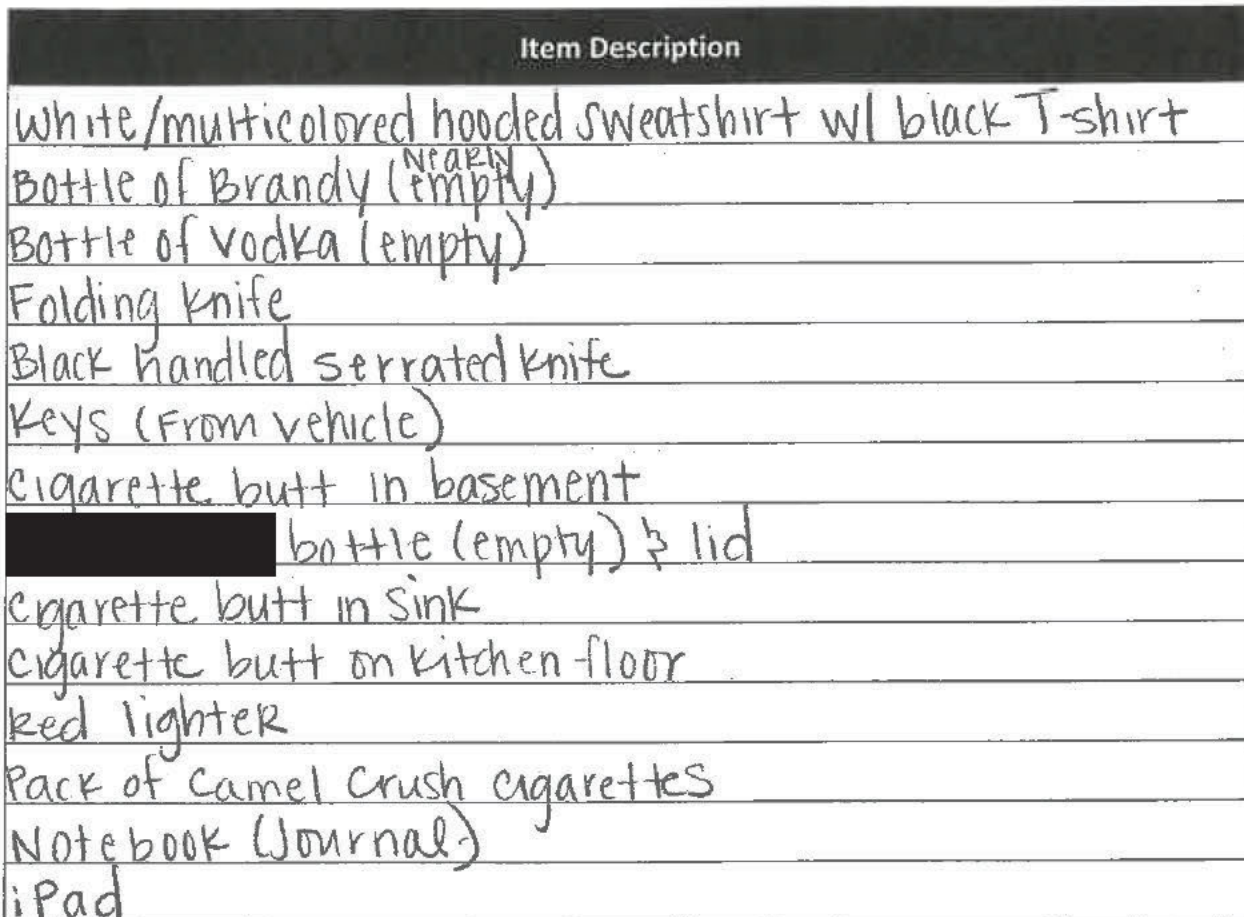 Item Description
White/multicolored hooded sweatshirt w/ black T-shirt
Bottle of Brandy (Nearly empty)
Bottle of Vodka (empty)
Folding knife
Black handled serrated knife
Keys (From vehicle)
cigarette butt in basement
bottle (empty) & lid
cigarette butt in sink
cigarette butt on kitchen floor
Red lighter
Pack of Camel Crush cigarettes
Notebook (Journal)
iPad